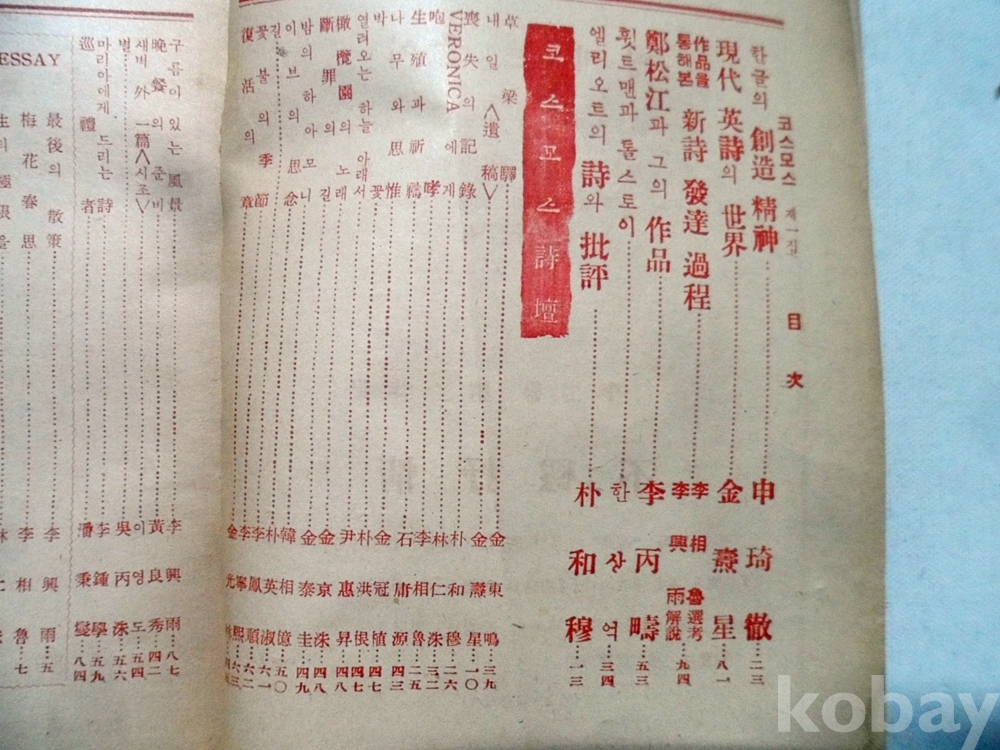 코스모스 제一집 目次
한글의 創造 精神 申琦徹 二三
現代 英詩의 世界 金熹星 八一
作品을 통해본 新詩 發達 過程 李相魯選考 李興雨解說 九四
鄭松江과 그의 作品 李丙疇 五三
휫트맨과 톨스토이 한산억 三四
엘리오트의 詩와 批評 朴和穆 一三
코스모스詩壇
草梁驛 金東鳴 三九
내일<遺稿> 金熹星 一〇
喪失의 記錄 朴和穆 二六
VERONICA에게 林仁洙 三二
咆哮 李相魯 二五
生殖과 祈禱 石庸源 五五
나무와 思惟 金冠植
박꽃 朴洪根 四七
열려오는 하늘 아래서 尹惠昇 四四
橄欖園의 노래 金京洙 四八
斷罪의 길 金泰圭 四九
밤의 하아모니 韓相億 五〇
이브의 思念 朴英淑
길 李鳳順 六一
꽃불의 季節 李寧熙 六二
復活의 章 金元
구름이 있는 風景 李興雨 八七
晩餐의 준비 黃良秀 四二
새벽 外 一篇<시조> 이영도 五四
별 吳丙洙 五六
마리아에게 드리는 詩 李鍾學 五九
巡禮者 潘秉燮 八四
ESSAY
最後의 散策 李興雨 五
梅花春思 李相魯 七
kobay